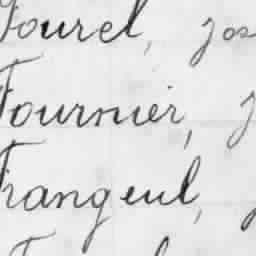 Fourel, Jos
Fournier, J
Frangeul,